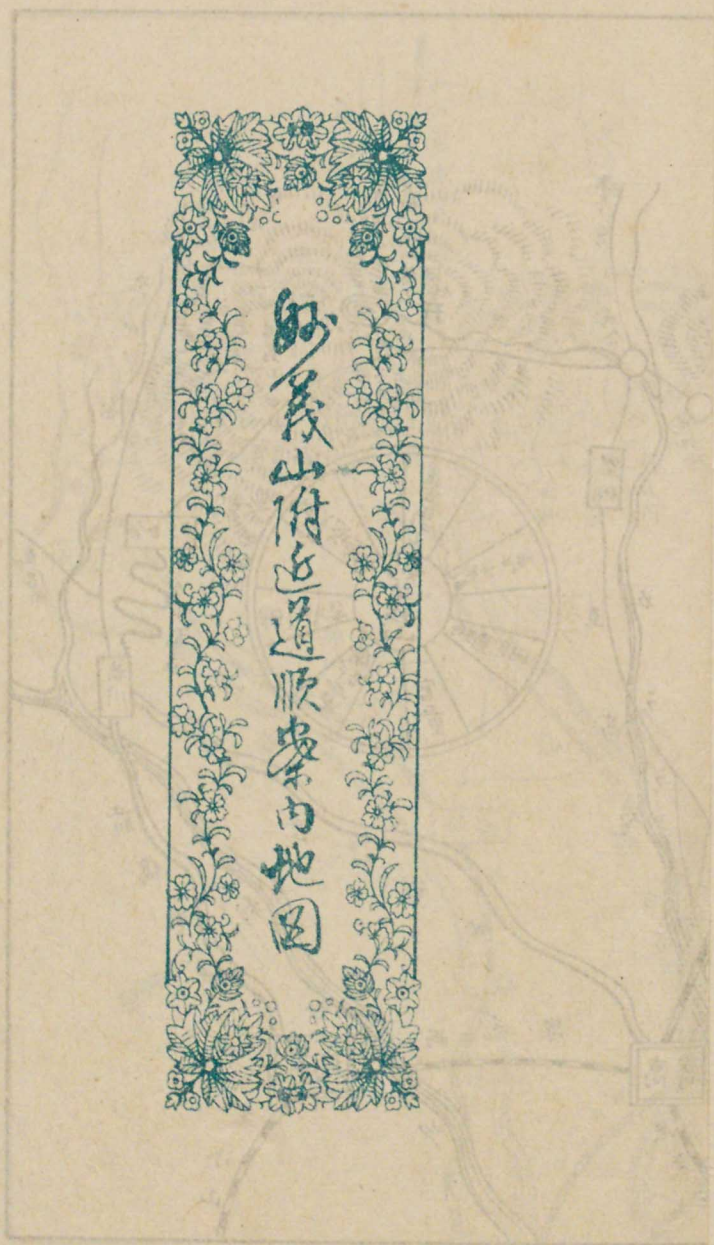 妙義山附近道順案内地図